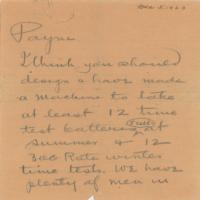 Dec 5 1923
Payne
I think you should
design & have made
a machine to take
at least 12 time
test batterys full at
summer & 12
300 Rate winter
time tests. We have
plenty of men in